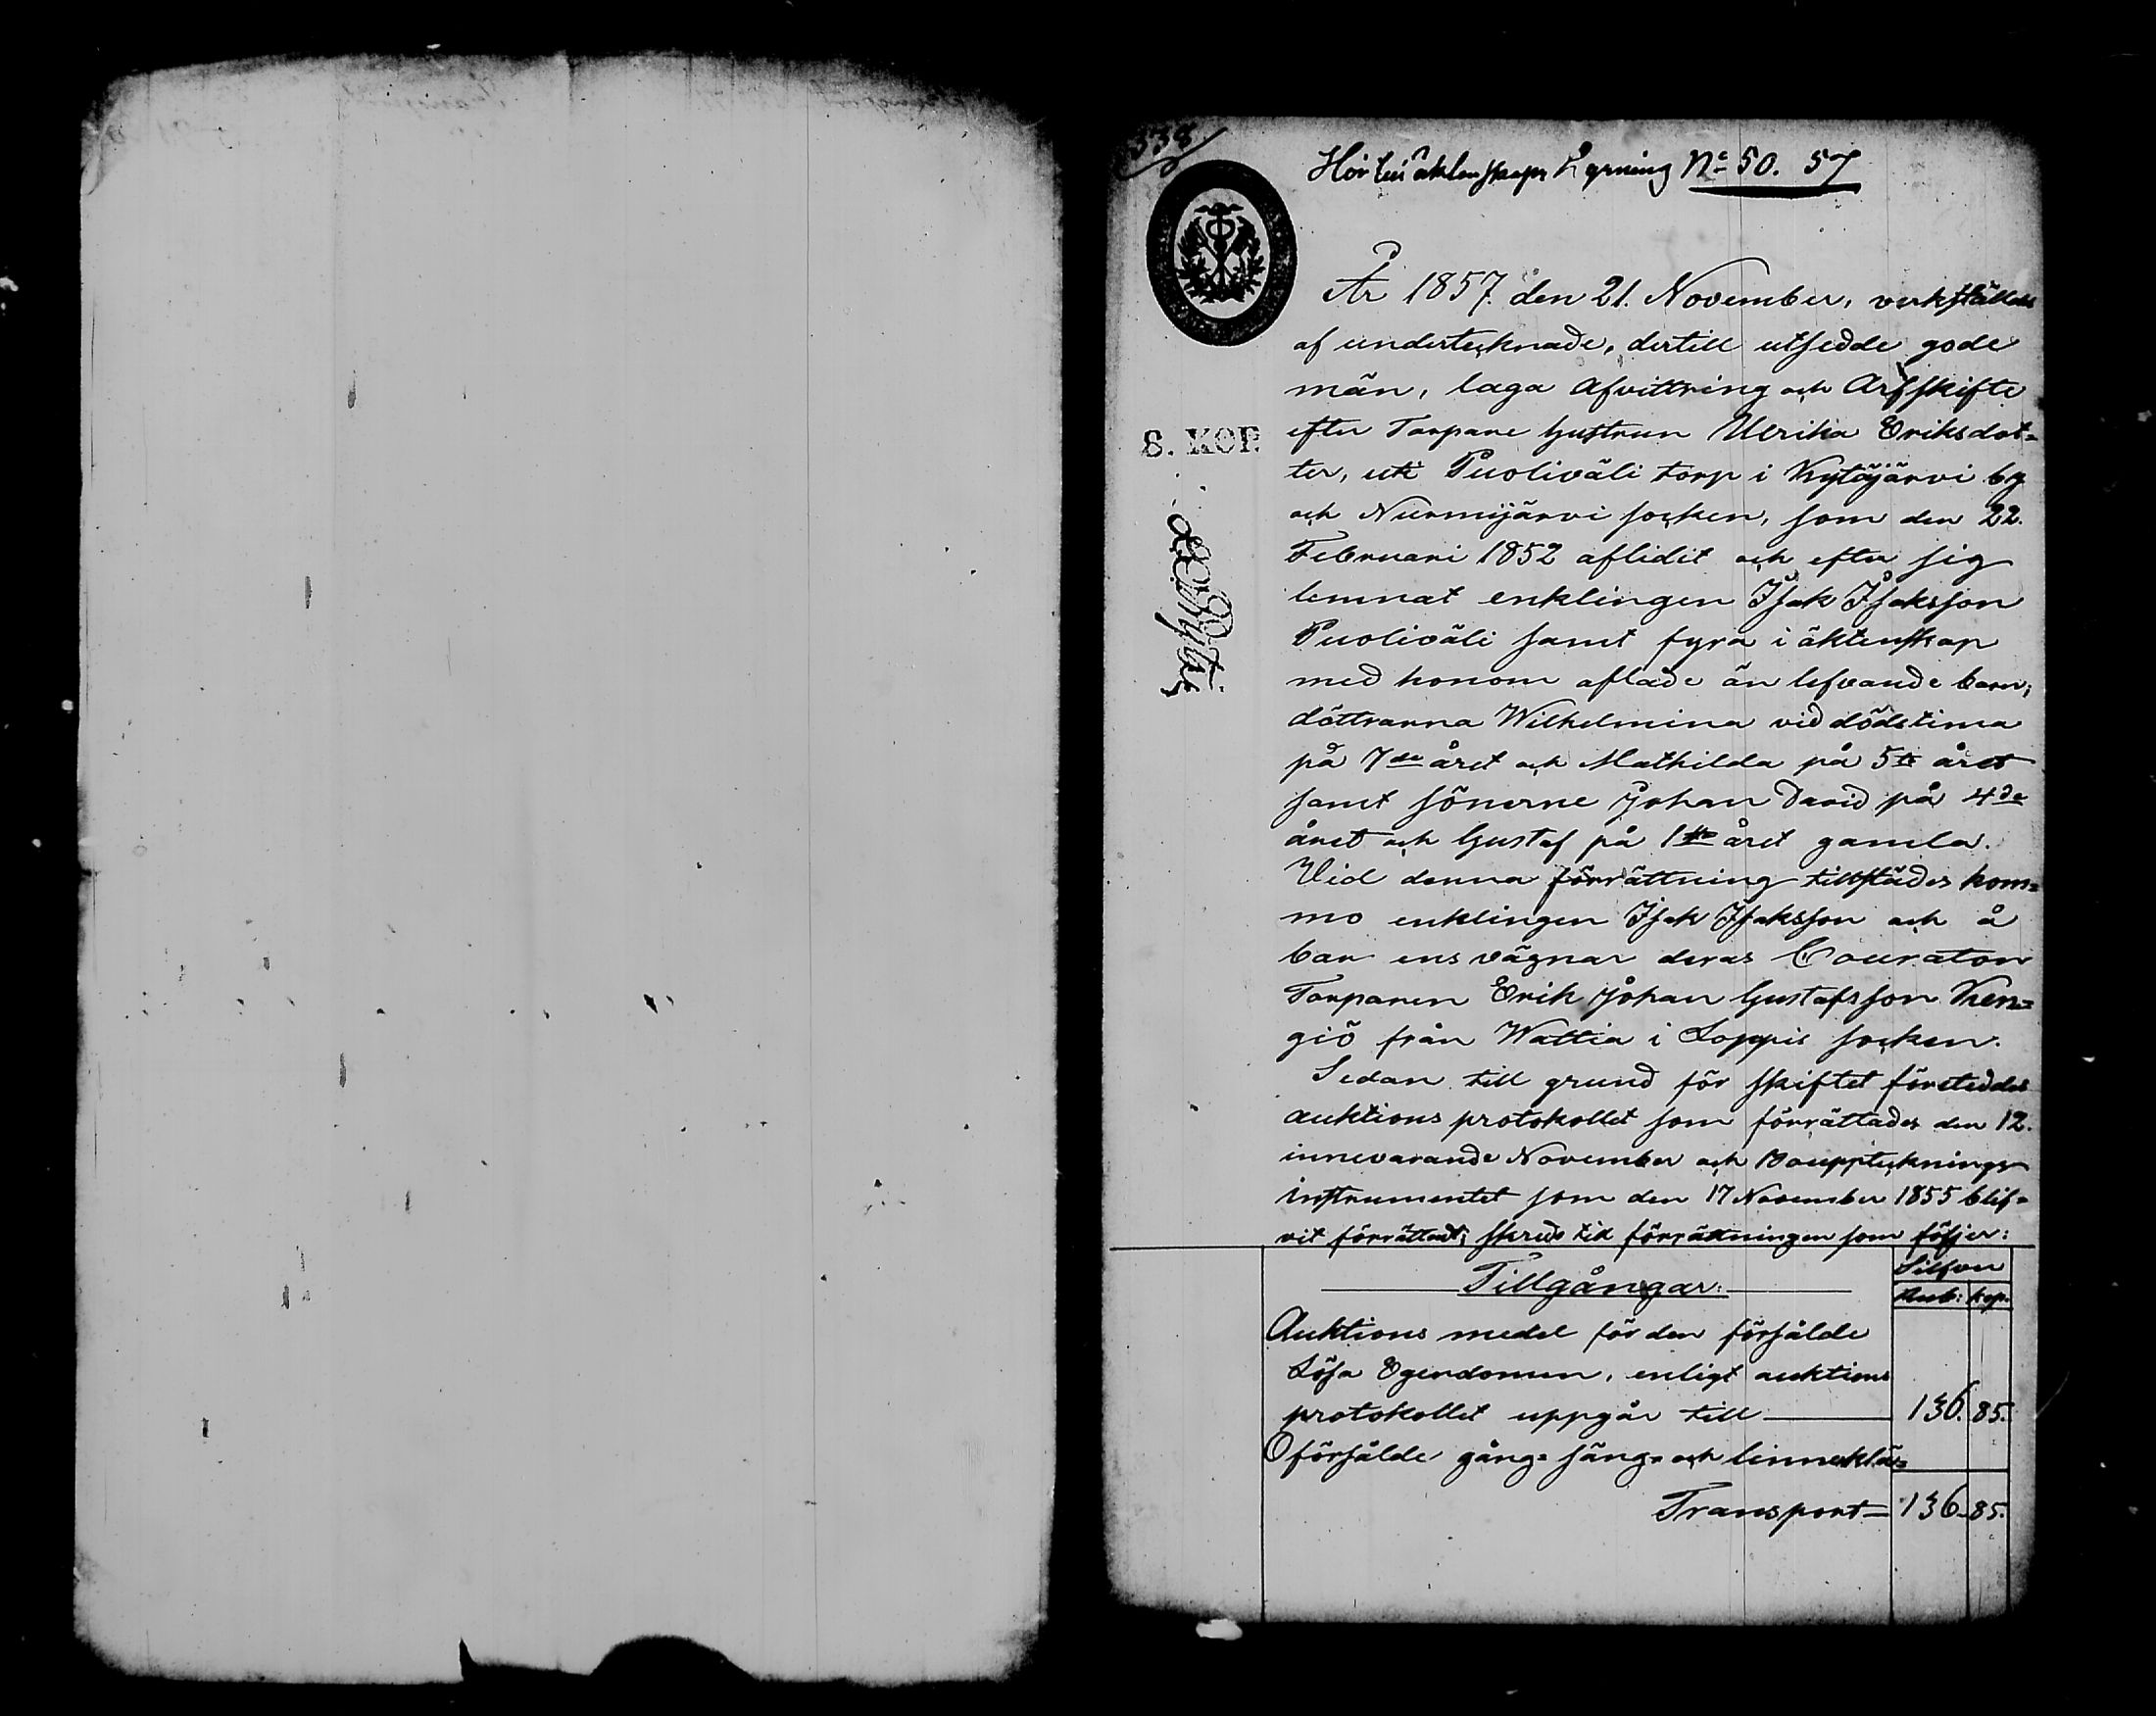 338
Hör till äktenskaps Lysning No 50. 57
År 1857 den 21. November, verkställdes
af undertecknade, dertill utsedde gode
män, laga Afvittring och Arfskifte
efter Torpare hustrun Ulrika Eriksdot=
ter, uti Puoliväli torp i Kytäjärvi by
och Nurmijärvi socken, som den 22.
Februari 1852 aflidit och efter sig
lemnat enklingen Isak Isaksson
Puoliväli samt fyra i äktenskap
med honom aflade än lefvande barn;
döttrarna Wilhelmina vid dödstima
på 7de året och Mathilda på 5te året
samt sönerne Johan David på 4de
året och Gustaf på 1sta året gamla.
Vid denna förrättning tillstädes kom=
mo enklingen Isak Isaksson och å
barnens vägnar deras Courator
Torparen Erik Johan Gustafsson Ken=
giö från Wattia i Loppis socken.
Sedan till grund för skiftet företeddes
auktions protokollet som förrättades den 12.
innevarande November och Boupptecknings
instrumentet som den 17 November 1855 blif=
vit förrättadt; skreds till förrättningen som följer:
Tillgångar:
Silfver
Rub: kop.
Auktions medel för den försålde
Lösa Egendomen, enligt auktions
protokollet uppgår till 136. 85.
Oförsålde gång= säng= och linneklä=
Transport= 136. 85.
8. KOP.